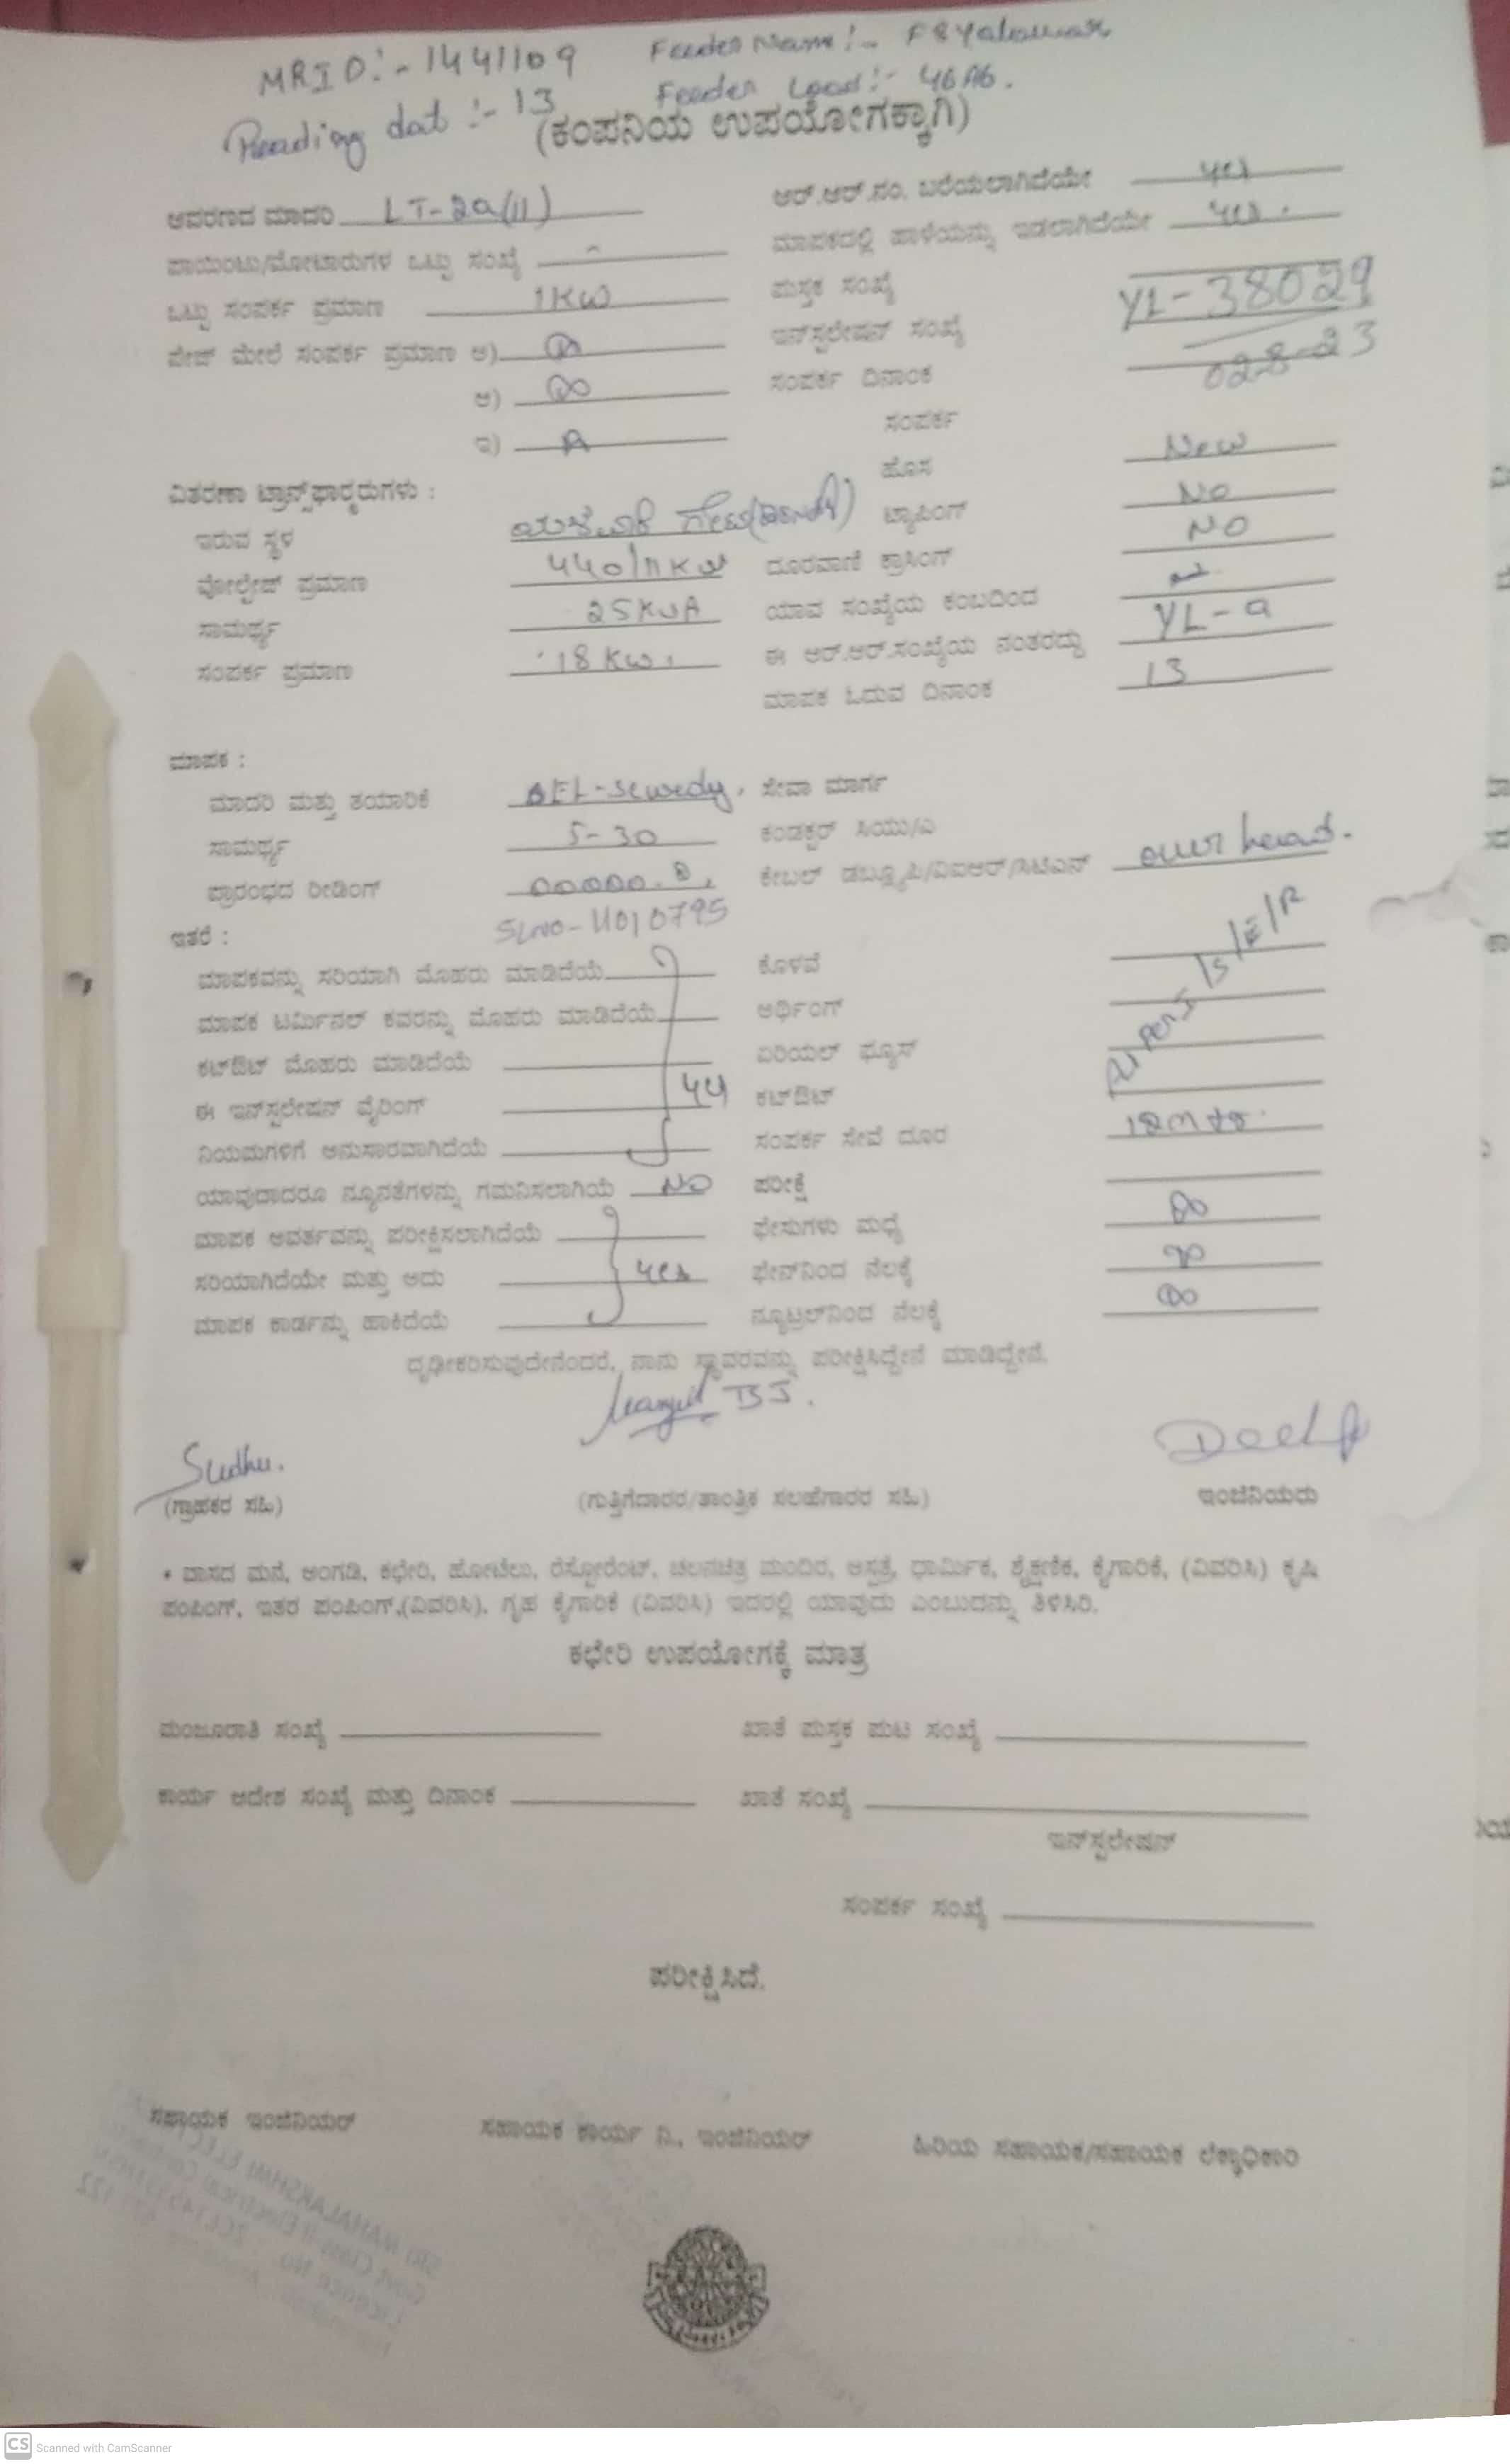 MRID:-1441109 Feeder Name:- F8
Reading dat :- 13 Feeder Load:- 46 A6.
(ಕಂಪನಿಯ ಉಪಯೋಗಕ್ಕಾಗಿ)
ಆವರಣದ ಮಾದರಿ LT-2a(II) ಆರ್.ಆರ್.ನಂ. ಬರೆಯಲಾಗಿದೆಯೇ yes
ಪಾಯಿಂಟು/ಮೋಟಾರುಗಳ ಒಟ್ಟು ಸಂಖ್ಯೆ - ಮಾಪಕದಲ್ಲಿ ಹಾಳೆಯನ್ನು ಇಡಲಾಗಿದೆಯೇ yes.
ಒಟ್ಟು ಸಂಪರ್ಕ ಪ್ರಮಾಣ 1KW ಪುಸ್ತಕ ಸಂಖ್ಯೆ
ಪೇಜ್ ಮೇಲೆ ಸಂಪರ್ಕ ಪ್ರಮಾಣ ಅ) ಇನ್‌ಸ್ಟಲೇಷನ್ ಸಂಖ್ಯೆ YL-38029
ಆ) ಸಂಪರ್ಕ ದಿನಾಂಕ 02-8-23
ಇ) ಸಂಪರ್ಕ
ಹೊಸ New
ವಿತರಣಾ ಟ್ರಾನ್ಸ್‌ಫಾರ್ಮರುಗಳು :
ಇರುವ ಸ್ಥಳ ಟ್ಯಾಪಿಂಗ್ NO
ವೋಲ್ಟೇಜ್ ಪ್ರಮಾಣ 440/11KV ದೂರವಾಣಿ ಕ್ರಾಸಿಂಗ್ NO
ಸಾಮರ್ಥ್ಯ 25KVA ಯಾವ ಸಂಖ್ಯೆಯ ಕಂಬದಿಂದ
ಸಂಪರ್ಕ ಪ್ರಮಾಣ 18KW. ಈ ಆರ್.ಆರ್.ಸಂಖ್ಯೆಯ ನಂತರದ್ದು YL-9
ಮಾಪಕ ಓದುವ ದಿನಾಂಕ 13
ಮಾಪಕ :
ಮಾದರಿ ಮತ್ತು ತಯಾರಿಕೆ ಸೇವಾ ಮಾರ್ಗ
ಸಾಮರ್ಥ್ಯ 5-30 ಕಂಡಕ್ಟರ್ ಸಿಯು/ಎ
ಪ್ರಾರಂಭದ ರೀಡಿಂಗ್ 00000.0, ಕೇಬಲ್ ಡಬ್ಲ್ಯೂಪಿ/ವಿಐಆರ್/ಸಿಟಿಎಸ್ over head.
SLNO-11010795
ಇತರೆ :
ಮಾಪಕವನ್ನು ಸರಿಯಾಗಿ ಮೊಹರು ಮಾಡಿದೆಯೆ ಕೊಳವೆ
ಮಾಪಕ ಟರ್ಮಿನಲ್ ಕವರನ್ನು ಮೊಹರು ಮಾಡಿದೆಯೆ ಅರ್ಥಿಂಗ್
ಕಟ್‌ಔಟ್ ಮೊಹರು ಮಾಡಿದೆಯೆ ಏರಿಯಲ್ ಫ್ಯೂಸ್
As Per I/S/E/R
ಈ ಇನ್‌ಸ್ಟಲೇಷನ್ ವೈರಿಂಗ್ yes ಕಟ್‌ಔಟ್
ನಿಯಮಗಳಿಗೆ ಅನುಸಾರವಾಗಿದೆಯೆ ಸಂಪರ್ಕ ಸೇವೆ ದೂರ
ಯಾವುದಾದರೂ ನ್ಯೂನತೆಗಳನ್ನು ಗಮನಿಸಲಾಗಿಯೆ NO ಪರೀಕ್ಷೆ
ಮಾಪಕ ಆವರ್ತವನ್ನು ಪರೀಕ್ಷಿಸಲಾಗಿದೆಯೆ ಫೇಸುಗಳು ಮಧ್ಯೆ
ಸರಿಯಾಗಿದೆಯೇ ಮತ್ತು ಅದು yes ಫೇಸ್‌ನಿಂದ ನೆಲಕ್ಕೆ
ಮಾಪಕ ಕಾರ್ಡನ್ನು ಹಾಕಿದೆಯೆ ನ್ಯೂಟ್ರಲ್‌ನಿಂದ ನೆಲಕ್ಕೆ
ದೃಢೀಕರಿಸುವುದೇನೆಂದರೆ, ನಾನು ಸ್ಥಾವರವನ್ನು ಪರೀಕ್ಷಿಸಿದ್ದೇನೆ ಮಾಡಿದ್ದೇನೆ.
Sudhu.
(ಗ್ರಾಹಕರ ಸಹಿ) (ಗುತ್ತಿಗೆದಾರರ/ತಾಂತ್ರಿಕ ಸಲಹೆಗಾರರ ಸಹಿ) ಇಂಜಿನಿಯರು
* ವಾಸದ ಮನೆ, ಅಂಗಡಿ, ಕಛೇರಿ, ಹೋಟೆಲು, ರೆಸ್ಟೋರೆಂಟ್, ಚಲನಚಿತ್ರ ಮಂದಿರ, ಆಸ್ಪತ್ರೆ, ಧಾರ್ಮಿಕ, ಶೈಕ್ಷಣಿಕ, ಕೈಗಾರಿಕೆ, (ವಿವರಿಸಿ) ಕೃಷಿ
ಪಂಪಿಂಗ್, ಇತರ ಪಂಪಿಂಗ್,(ವಿವರಿಸಿ), ಗೃಹ ಕೈಗಾರಿಕೆ (ವಿವರಿಸಿ) ಇದರಲ್ಲಿ ಯಾವುದು ಎಂಬುದನ್ನು ತಿಳಿಸಿರಿ.
ಕಛೇರಿ ಉಪಯೋಗಕ್ಕೆ ಮಾತ್ರ
ಮಂಜೂರಾತಿ ಸಂಖ್ಯೆ ಖಾತೆ ಪುಸ್ತಕ ಪುಟ ಸಂಖ್ಯೆ
ಕಾರ್ಯ ಆದೇಶ ಸಂಖ್ಯೆ ಮತ್ತು ದಿನಾಂಕ ಖಾತೆ ಸಂಖ್ಯೆ
ಇನ್‌ಸ್ಟಲೇಷನ್
ಸಂಪರ್ಕ ಸಂಖ್ಯೆ
ಪರೀಕ್ಷಿಸಿದೆ.
ಸಹಾಯಕ ಇಂಜಿನಿಯರ್ ಸಹಾಯಕ ಕಾರ್ಯ ನಿ., ಇಂಜಿನಿಯರ್ ಹಿರಿಯ ಸಹಾಯಕ/ಸಹಾಯಕ ಲೆಕ್ಕಾಧಿಕಾರಿ
CS Scanned with CamScanner